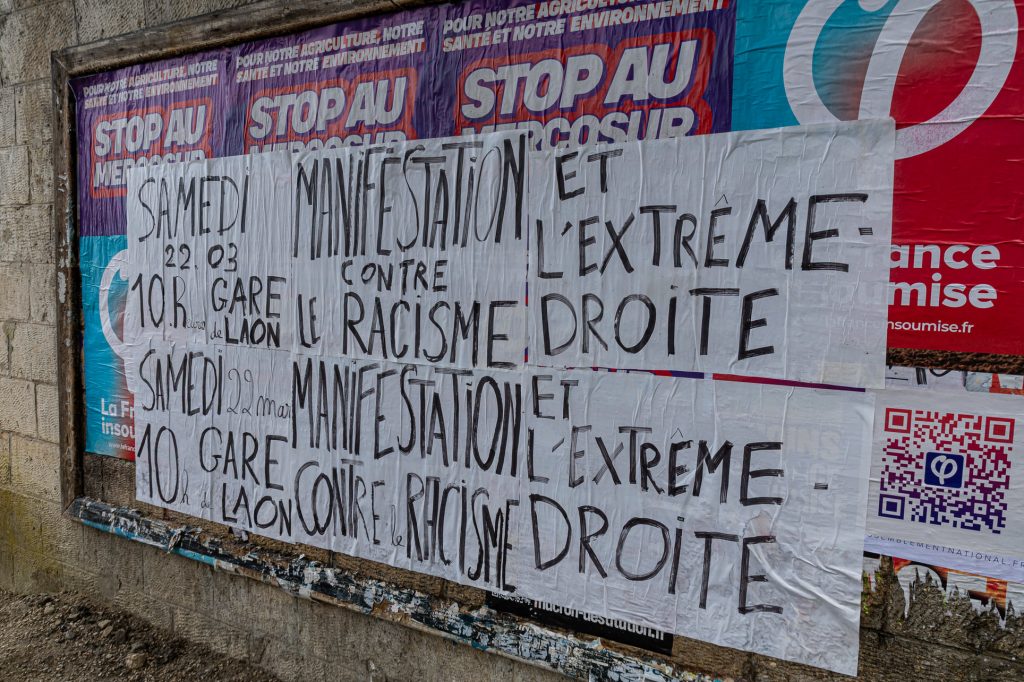 POUR NOTRE AGRICULTURE, NOTRE
SANTÉ ET NOTRE ENVIRONNEMENT
STOP AU
MERCOSUR
POUR NOTRE AGRICULTURE, NOTRE
SANTÉ ET NOTRE ENVIRONNEMENT
STOP AU
MERCOSUR
POUR NOTRE AGRICULTURE, NOTRE
SANTÉ ET NOTRE ENVIRONNEMENT
STOP AU
MERCOSUR
SAMEDI
22.03
10h GARE
de LAON
MANIFESTATION
CONTRE
LE RACISME
ET
L'EXTRÊME-
DROITE
SAMEDI 22 mars
10h GARE
de LAON
MANIFESTATION
CONTRE le RACISME
ET
L'EXTRÊME-
DROITE
ance
umise
insoumise.fr
La Fr
insou
www.lafra
SSEMBLEMENTNATIONAL.FR
macron-destitution.fr